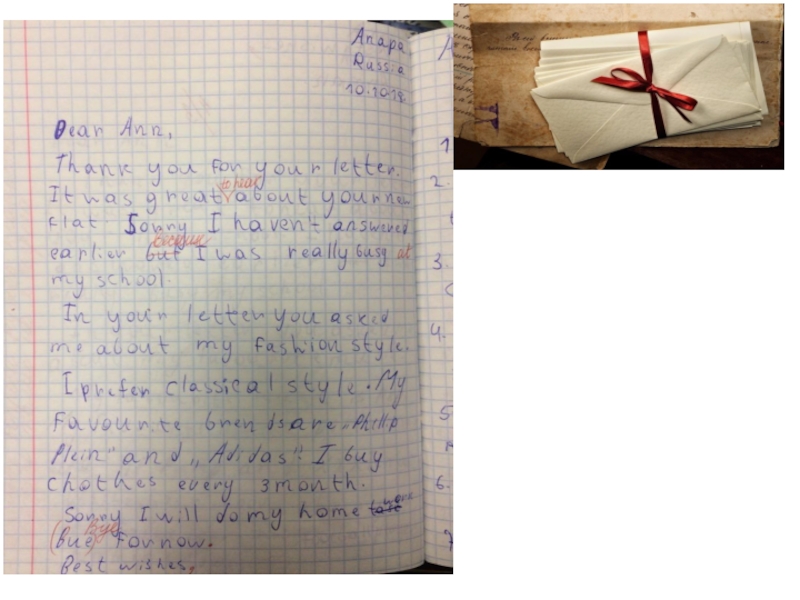 Anapa
Russia
10.10.18.
Dear Ann,
Thank you for your letter.
to hear
It was great about your new
flat Sorry I haven't answered
because
earlier but I was really busy at
my school.
In your letter you asked
me about my fashion style.
I prefer classical style. My
Favourite brends are „Philip
Plein" and „Adidas". I buy
chothes every 3 month.
Sorry I will do my home work
Bye
(bue) For now.
Best wishes,
1
2.
3.
4.
5
6.
7